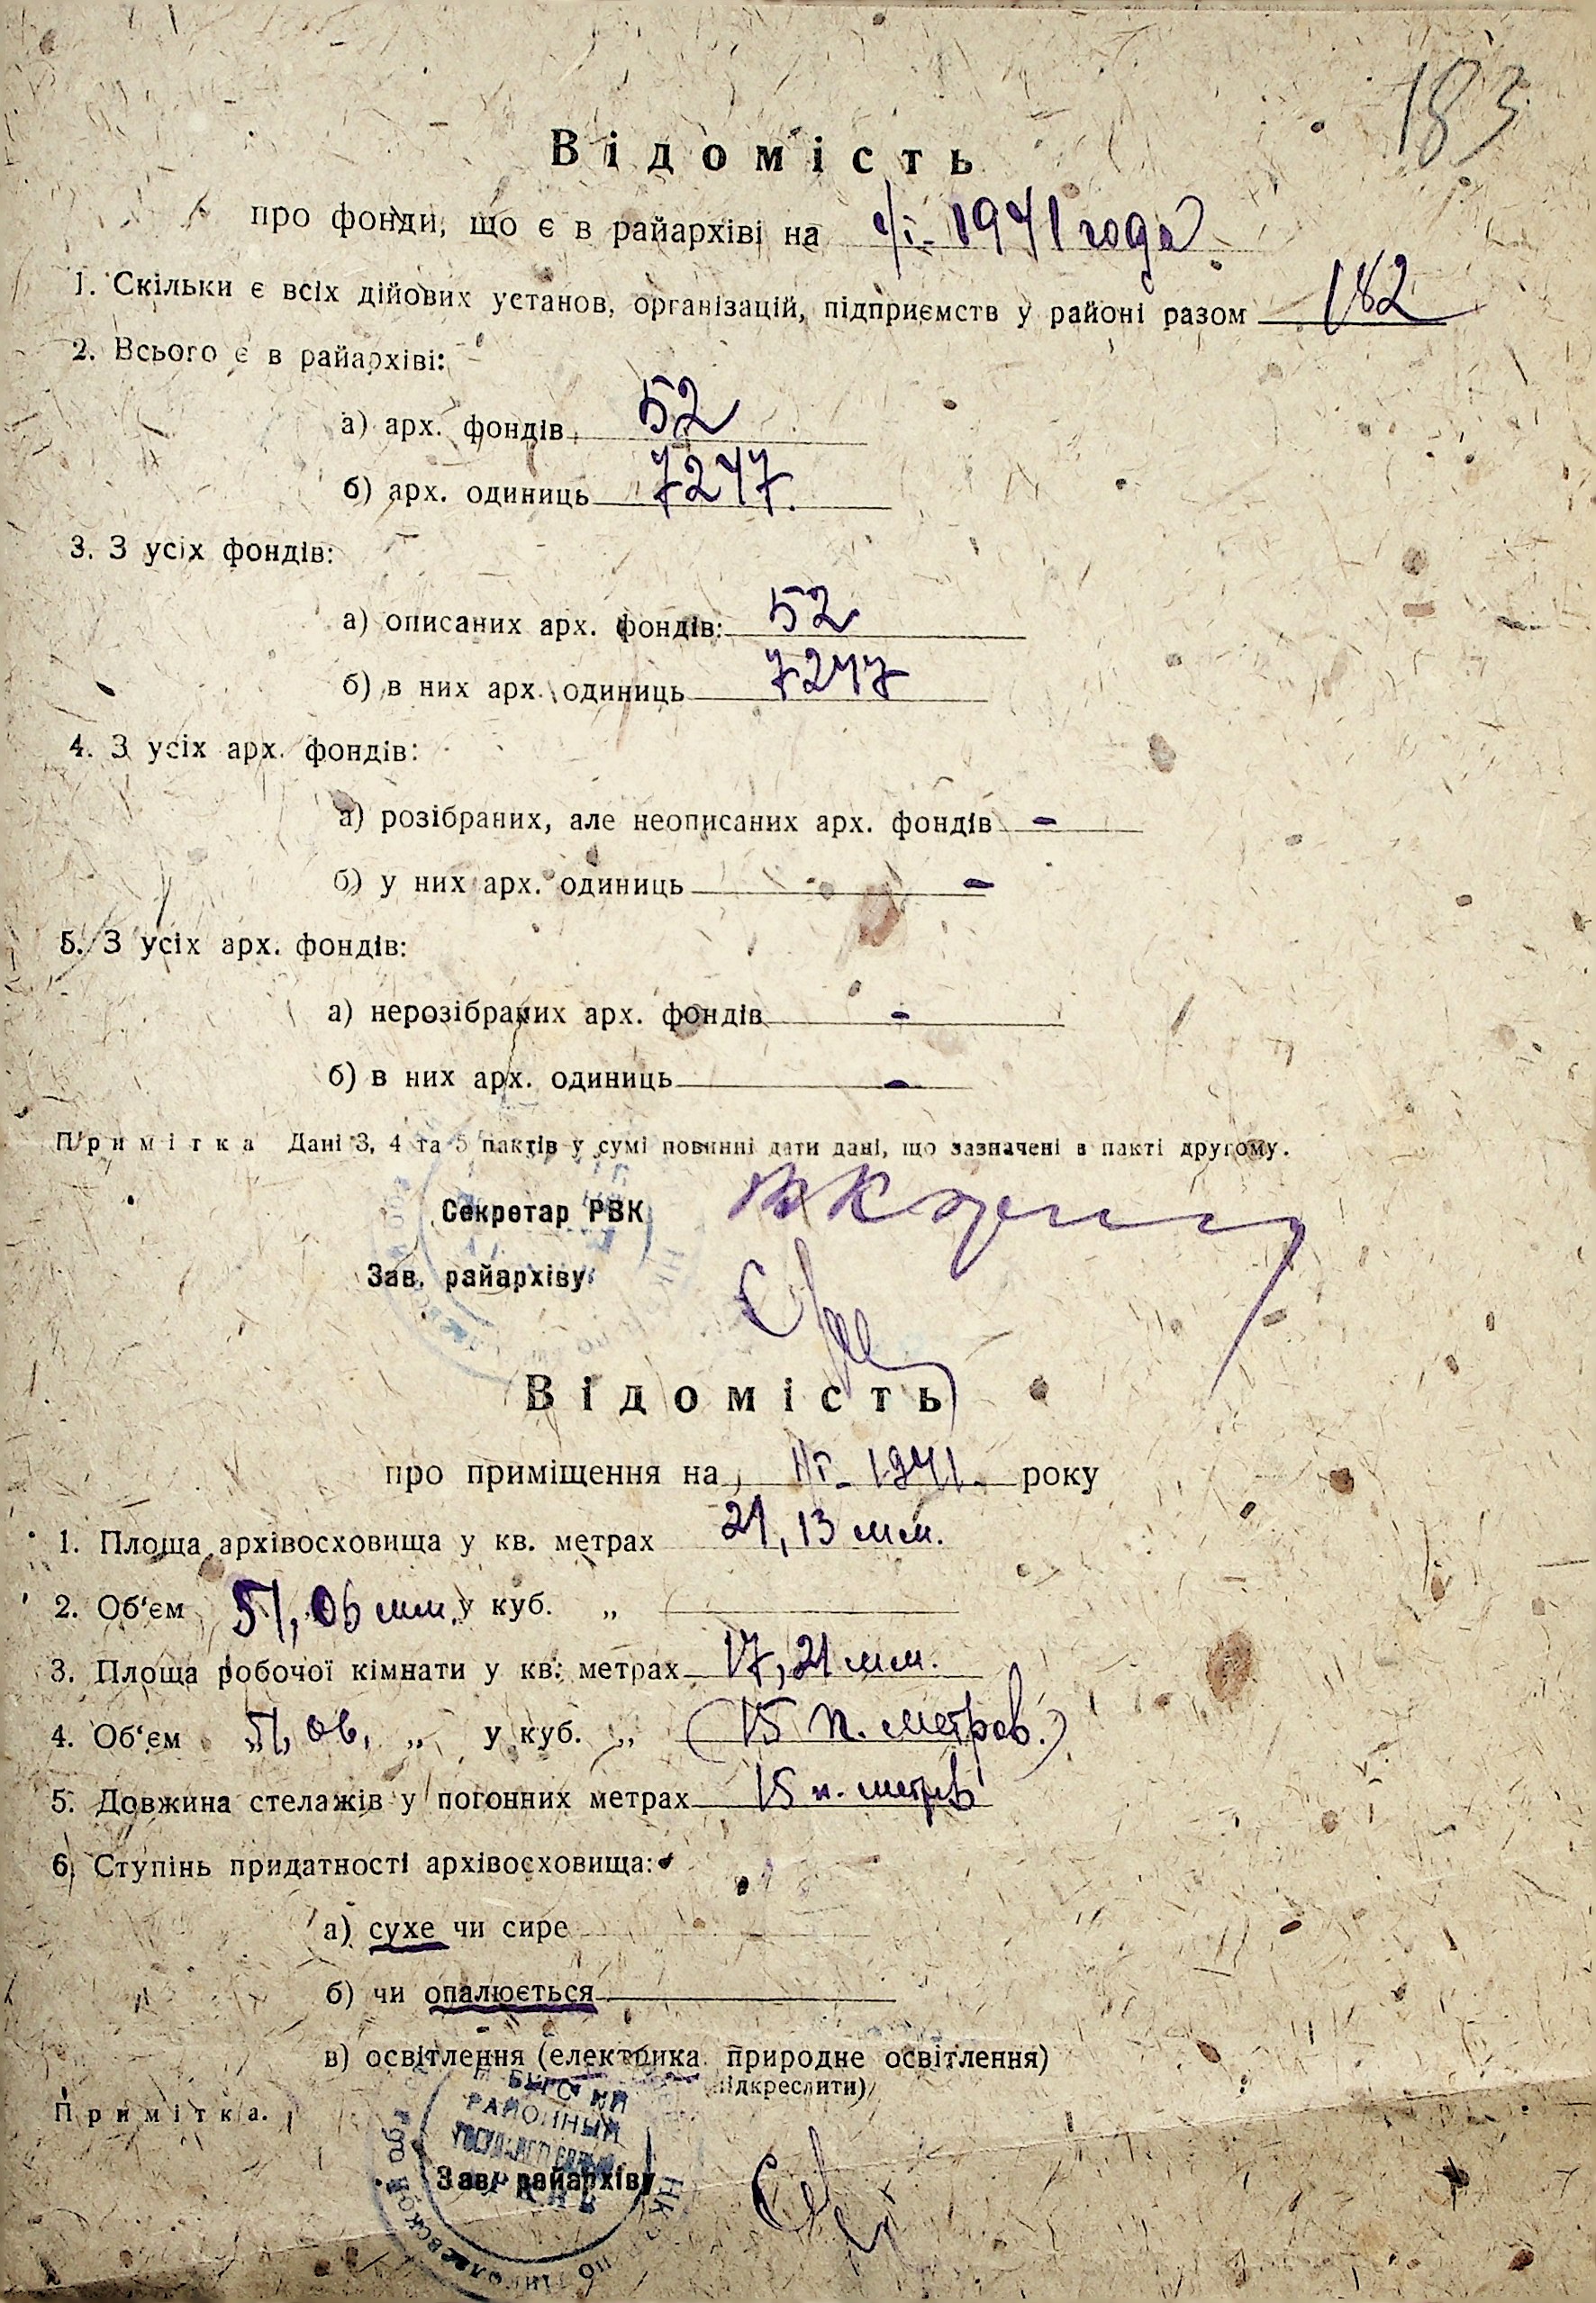 183
Відомість
про фонди, що є в райархіві на 1/I- 1941 года
1. Скільки є всіх дійових установ, організацій, підприємств у районі разом 182
2. Всього є в райархіві:
а) арх. фондів 52
б) арх. одиниць 7247.
3. З усіх фондів:
а) описаних арх. фондів: 52
б) в них арх. одиниць 7247
4. З усіх арх. фондів:
а) розібраних, але неописаних арх. фондів -
б) у них арх. одиниць -
5. З усіх арх. фондів:
а) нерозібраних арх. фондів -
б) в них арх. одиниць -
Примітка Дані 3, 4 та 5 пактів у сумі повинні дати дані, що зазначені в пакті другому.
Секретар РВК
Зав. райархіву
Відомість
про приміщення на 1/I- 1941. року
1. Площа архівосховища у кв. метрах 21,13 мм.
2. Об'єм 51,06 мм. у куб. „
3. Площа робочої кімнати у кв. метрах 17,21 мм.
4. Об'єм 51,06, „ у куб. „ (15 п. метров.)
5. Довжина стелажів у погонних метрах 15 п. метров
6. Ступінь придатності архівосховища:
а) сухе чи сире
б) чи опалюється
в) освітлення (електрика природне освітлення)
підкреслити)
Примітка.
РАЙОННЫЙ
Зав. райархіву